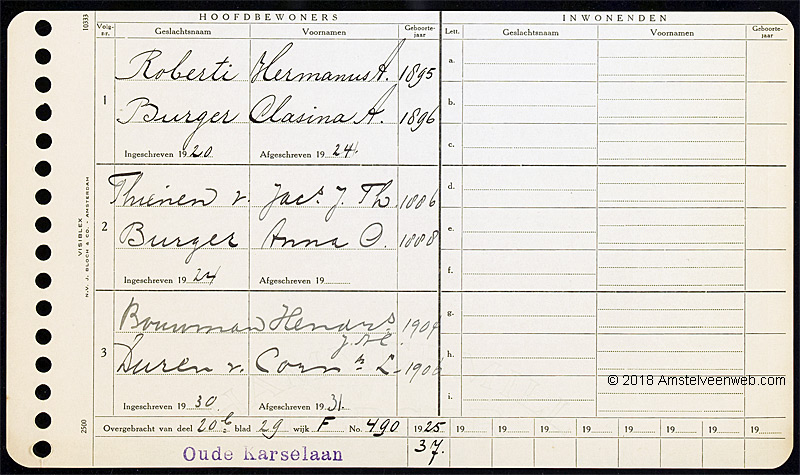 HOOFDBEWONERS
INWONENDEN
10333
Volg-nr. Geslachtsnaam Voornamen Geboorte-jaar
Lett. Geslachtsnaam Voornamen Geboorte-jaar
1
Roberti Hermanus A. 1895
Burger Clasina A. 1896
Ingeschreven 1920 Afgeschreven 1924
2
Thienen v. Jacs. J. Th. 1886
Burger Anna C. 1888
Ingeschreven 1924 Afgeschreven 19
3
Bouwman Hendrs.
Duren v. Corn
Ingeschreven 1930 Afgeschreven 1931.
a.
b.
c.
d.
e.
f.
g.
h.
i.
VISIBLEX
N.V. J. BLOCH & CO. - AMSTERDAM
2500
Overgebracht van deel 20 blad 29 wijk F No. 490 1925 19 19 19 19 19 19 19 19
37.
Oude Karselaan
© 2018 Amstelveenweb.com